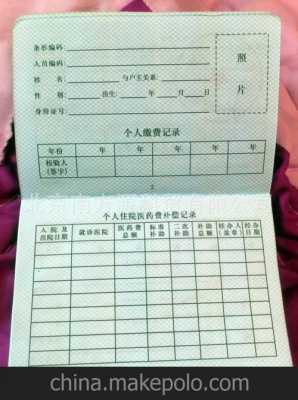 条形编码:
人员编码:
姓 名: 与户主关系:
性 别: 出生: 年 月 日
身份证号:
照
片
个人缴费记录
年份 年 年 年 年
校验人
(签字)
2
个人住院医药费补偿记录
入 院 及
出院日期
就诊医院
医药费
总额
标准
补助
二次
补助
补助
总额
经办人
(盖章)
经办
日期
china.makepolo.com